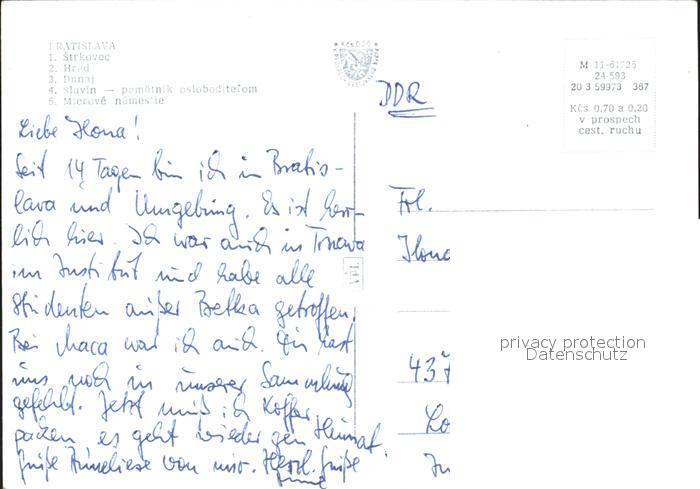 BRATISLAVA
1. Štrkovec
2. Hrad
3. Dunaj
4. Slavín — pamätník osloboditeľom
5. Mierové námestie
Kčs 0,20
M 11-61725
24-593
20 3 59973 367
Kčs 0,70 a 0,20
v prospech
cest. ruchu
DDR
Liebe Ilona!
Seit 14 Tagen bin ich in Bratis-
lava und Umgebung. Es ist herr-
lich hier. Ich war auch in Trnava
im Institut und habe alle
Studenten außer Betka getroffen.
Bei Maca war ich auch. Du hast
uns noch in unserer Sammlung
gefehlt. Jetzt muß ich Koffer
packen, es geht wieder gen Heimat.
Grüße Anneliese von mir. Herzl. Grüße
Frl.
Ilona
437
privacy protection
Datenschutz